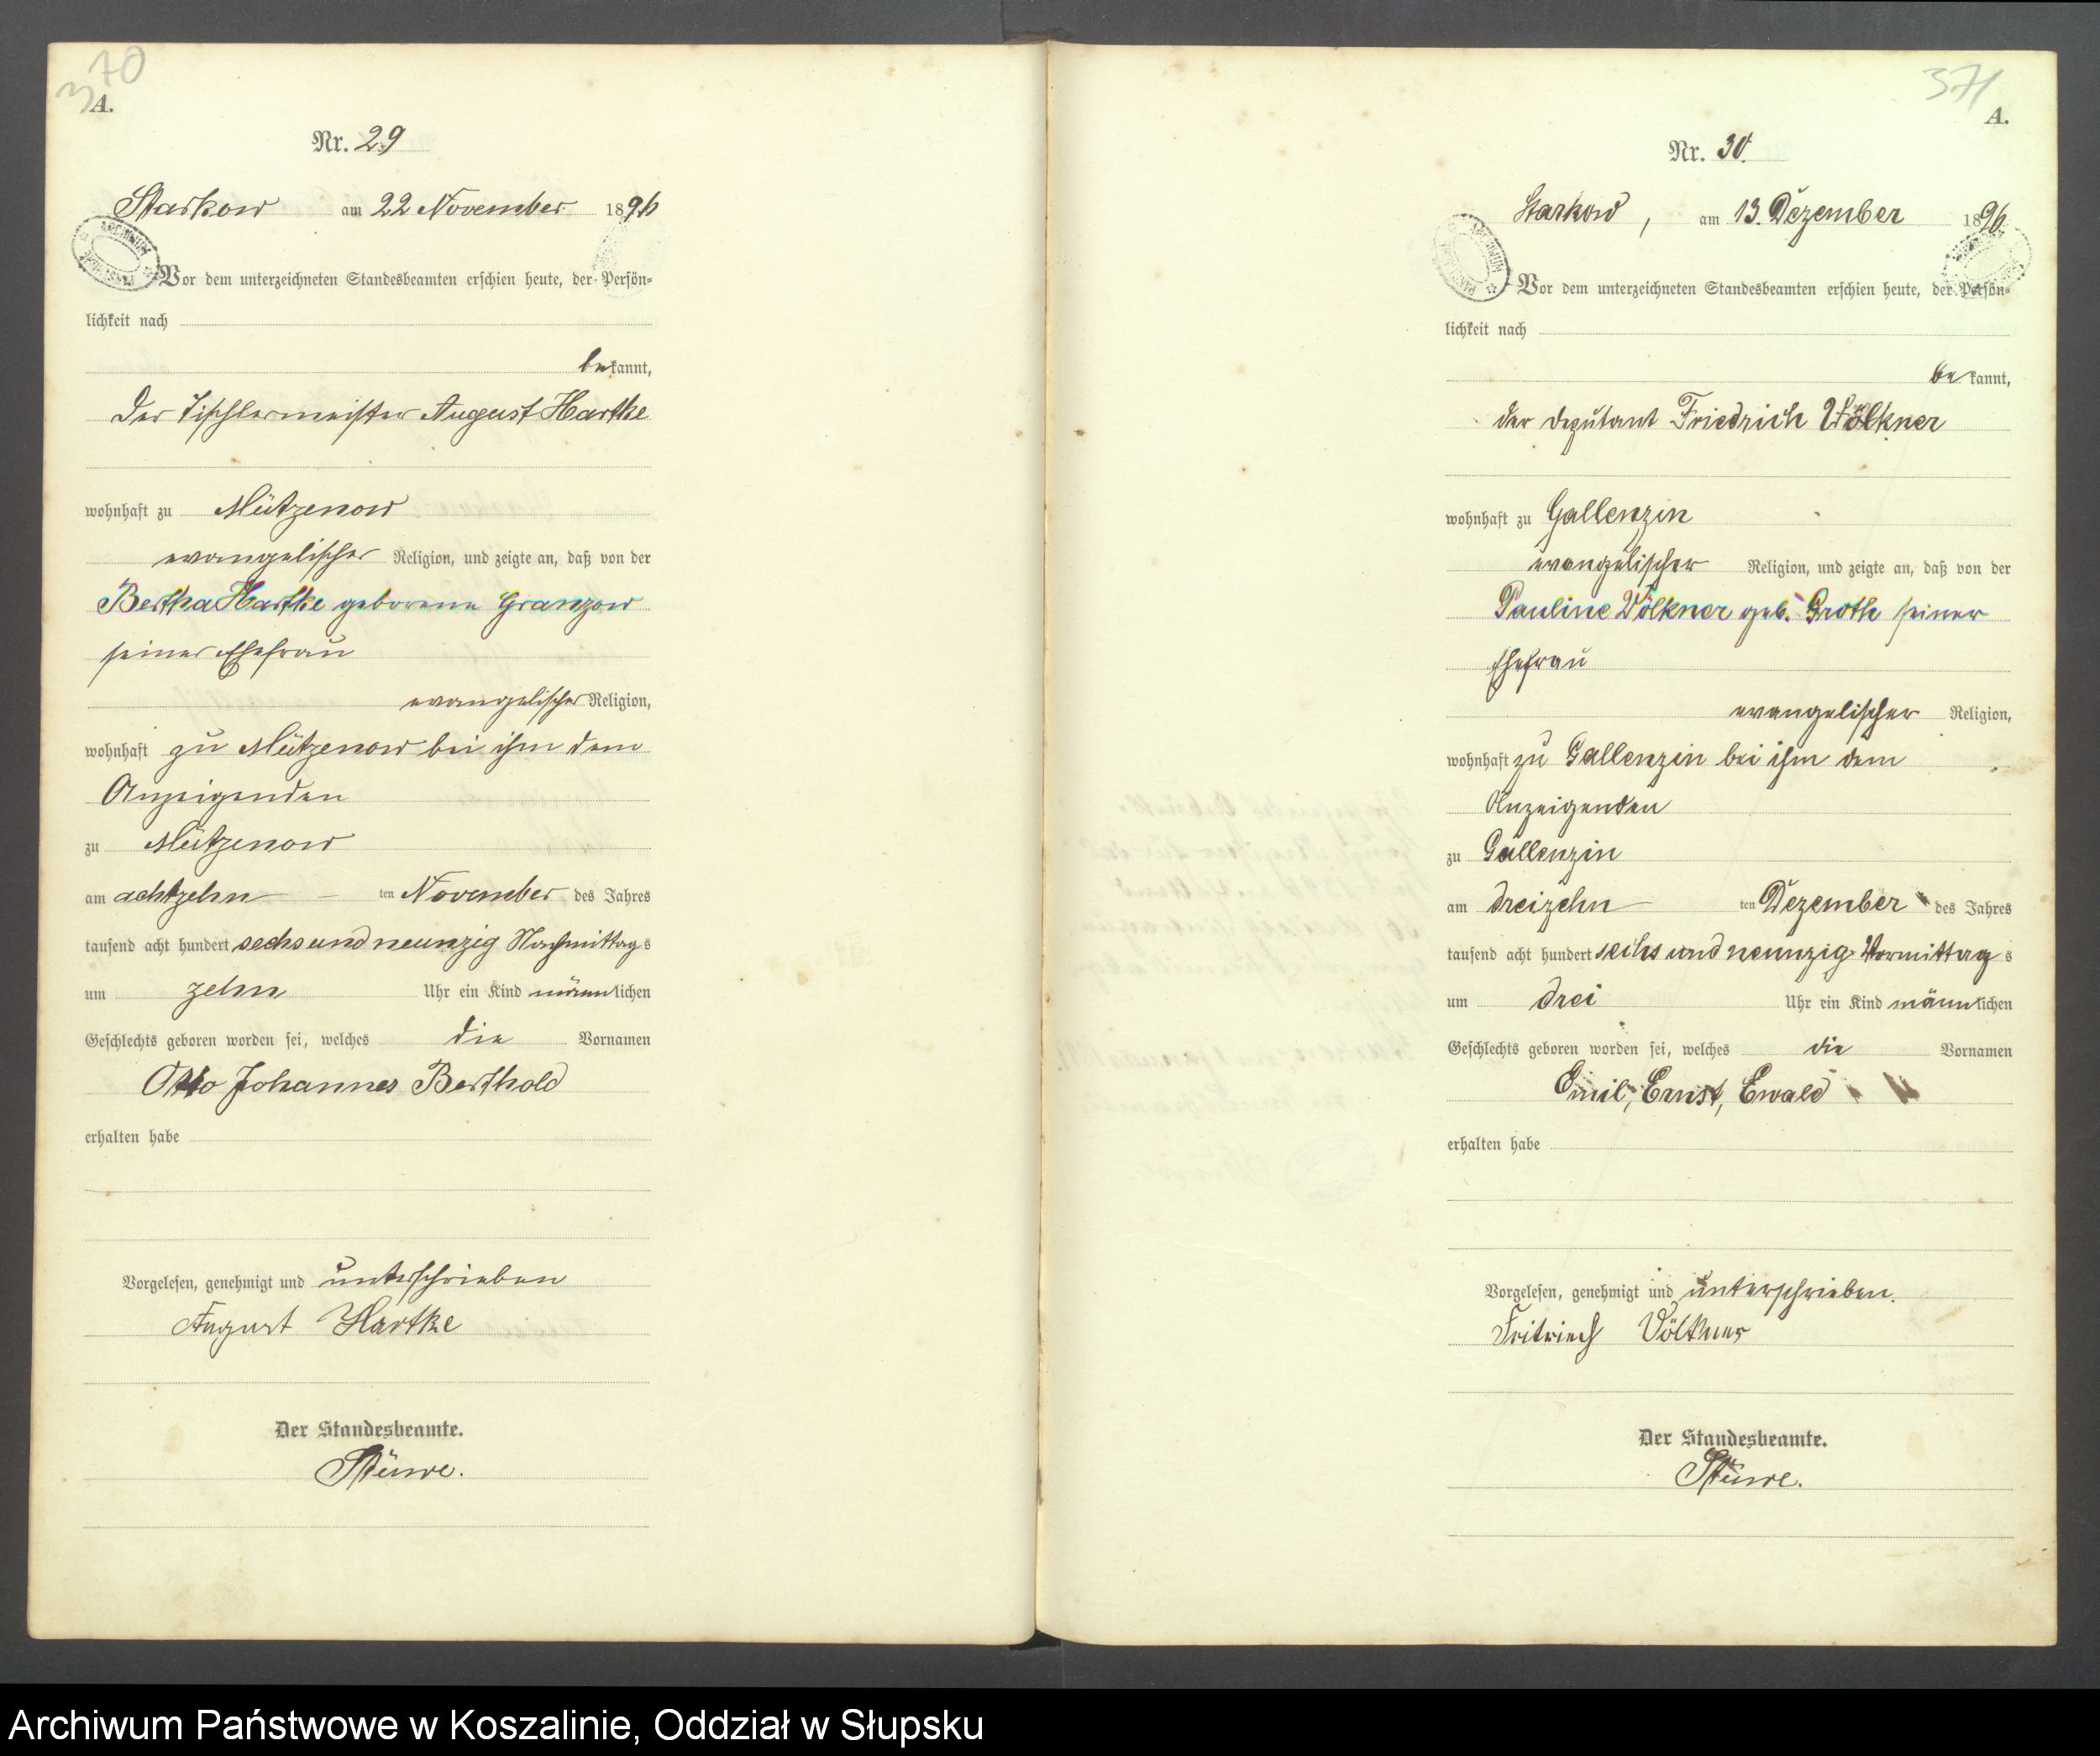 370
A.
Nr. 29
Starkow am 22 November 1896
Vor dem unterzeichneten Standesbeamten erschien heute, der Persön-
lichkeit nach
bekannt,
der Tischlermeister August Hartke
wohnhaft zu Mützenow
evangelischer Religion, und zeigte an, daß von der
Bertha Hartke geborene Granzow
seiner Ehefrau
evangelischer Religion,
wohnhaft zu Mützenow bei ihm dem
Anzeigenden
zu Mützenow
am achtzehn ten November des Jahres
tausend acht hundert sechsundneunzig Nachmittags
um zehn Uhr ein Kind männlichen
Geschlechts geboren worden sei, welches die Vornamen
Otto Johannes Berthold
erhalten habe
Vorgelesen, genehmigt und unterschrieben
August Hartke
Der Standesbeamte.
Stüwe.
371
A.
Nr. 30.
Starkow, am 13. Dezember 1896.
Vor dem unterzeichneten Standesbeamten erschien heute, der Persön-
lichkeit nach
bekannt,
der Deputant Friedrich Völkner
wohnhaft zu Gallenzin
evangelischer Religion, und zeigte an, daß von der
Pauline Völkner geb. Groth seiner
Ehefrau
evangelischer Religion,
wohnhaft zu Gallenzin bei ihm dem
Anzeigenden
zu Gallenzin
am dreizehn ten Dezember des Jahres
tausend acht hundert sechs und neunzig Vormittags
um drei Uhr ein Kind männlichen
Geschlechts geboren worden sei, welches die Vornamen
Emil, Ernst, Ewald
erhalten habe
Vorgelesen, genehmigt und unterschrieben.
Fritriech Völkner
Der Standesbeamte.
Stüwe.
Archiwum Państwowe w Koszalinie, Oddział w Słupsku